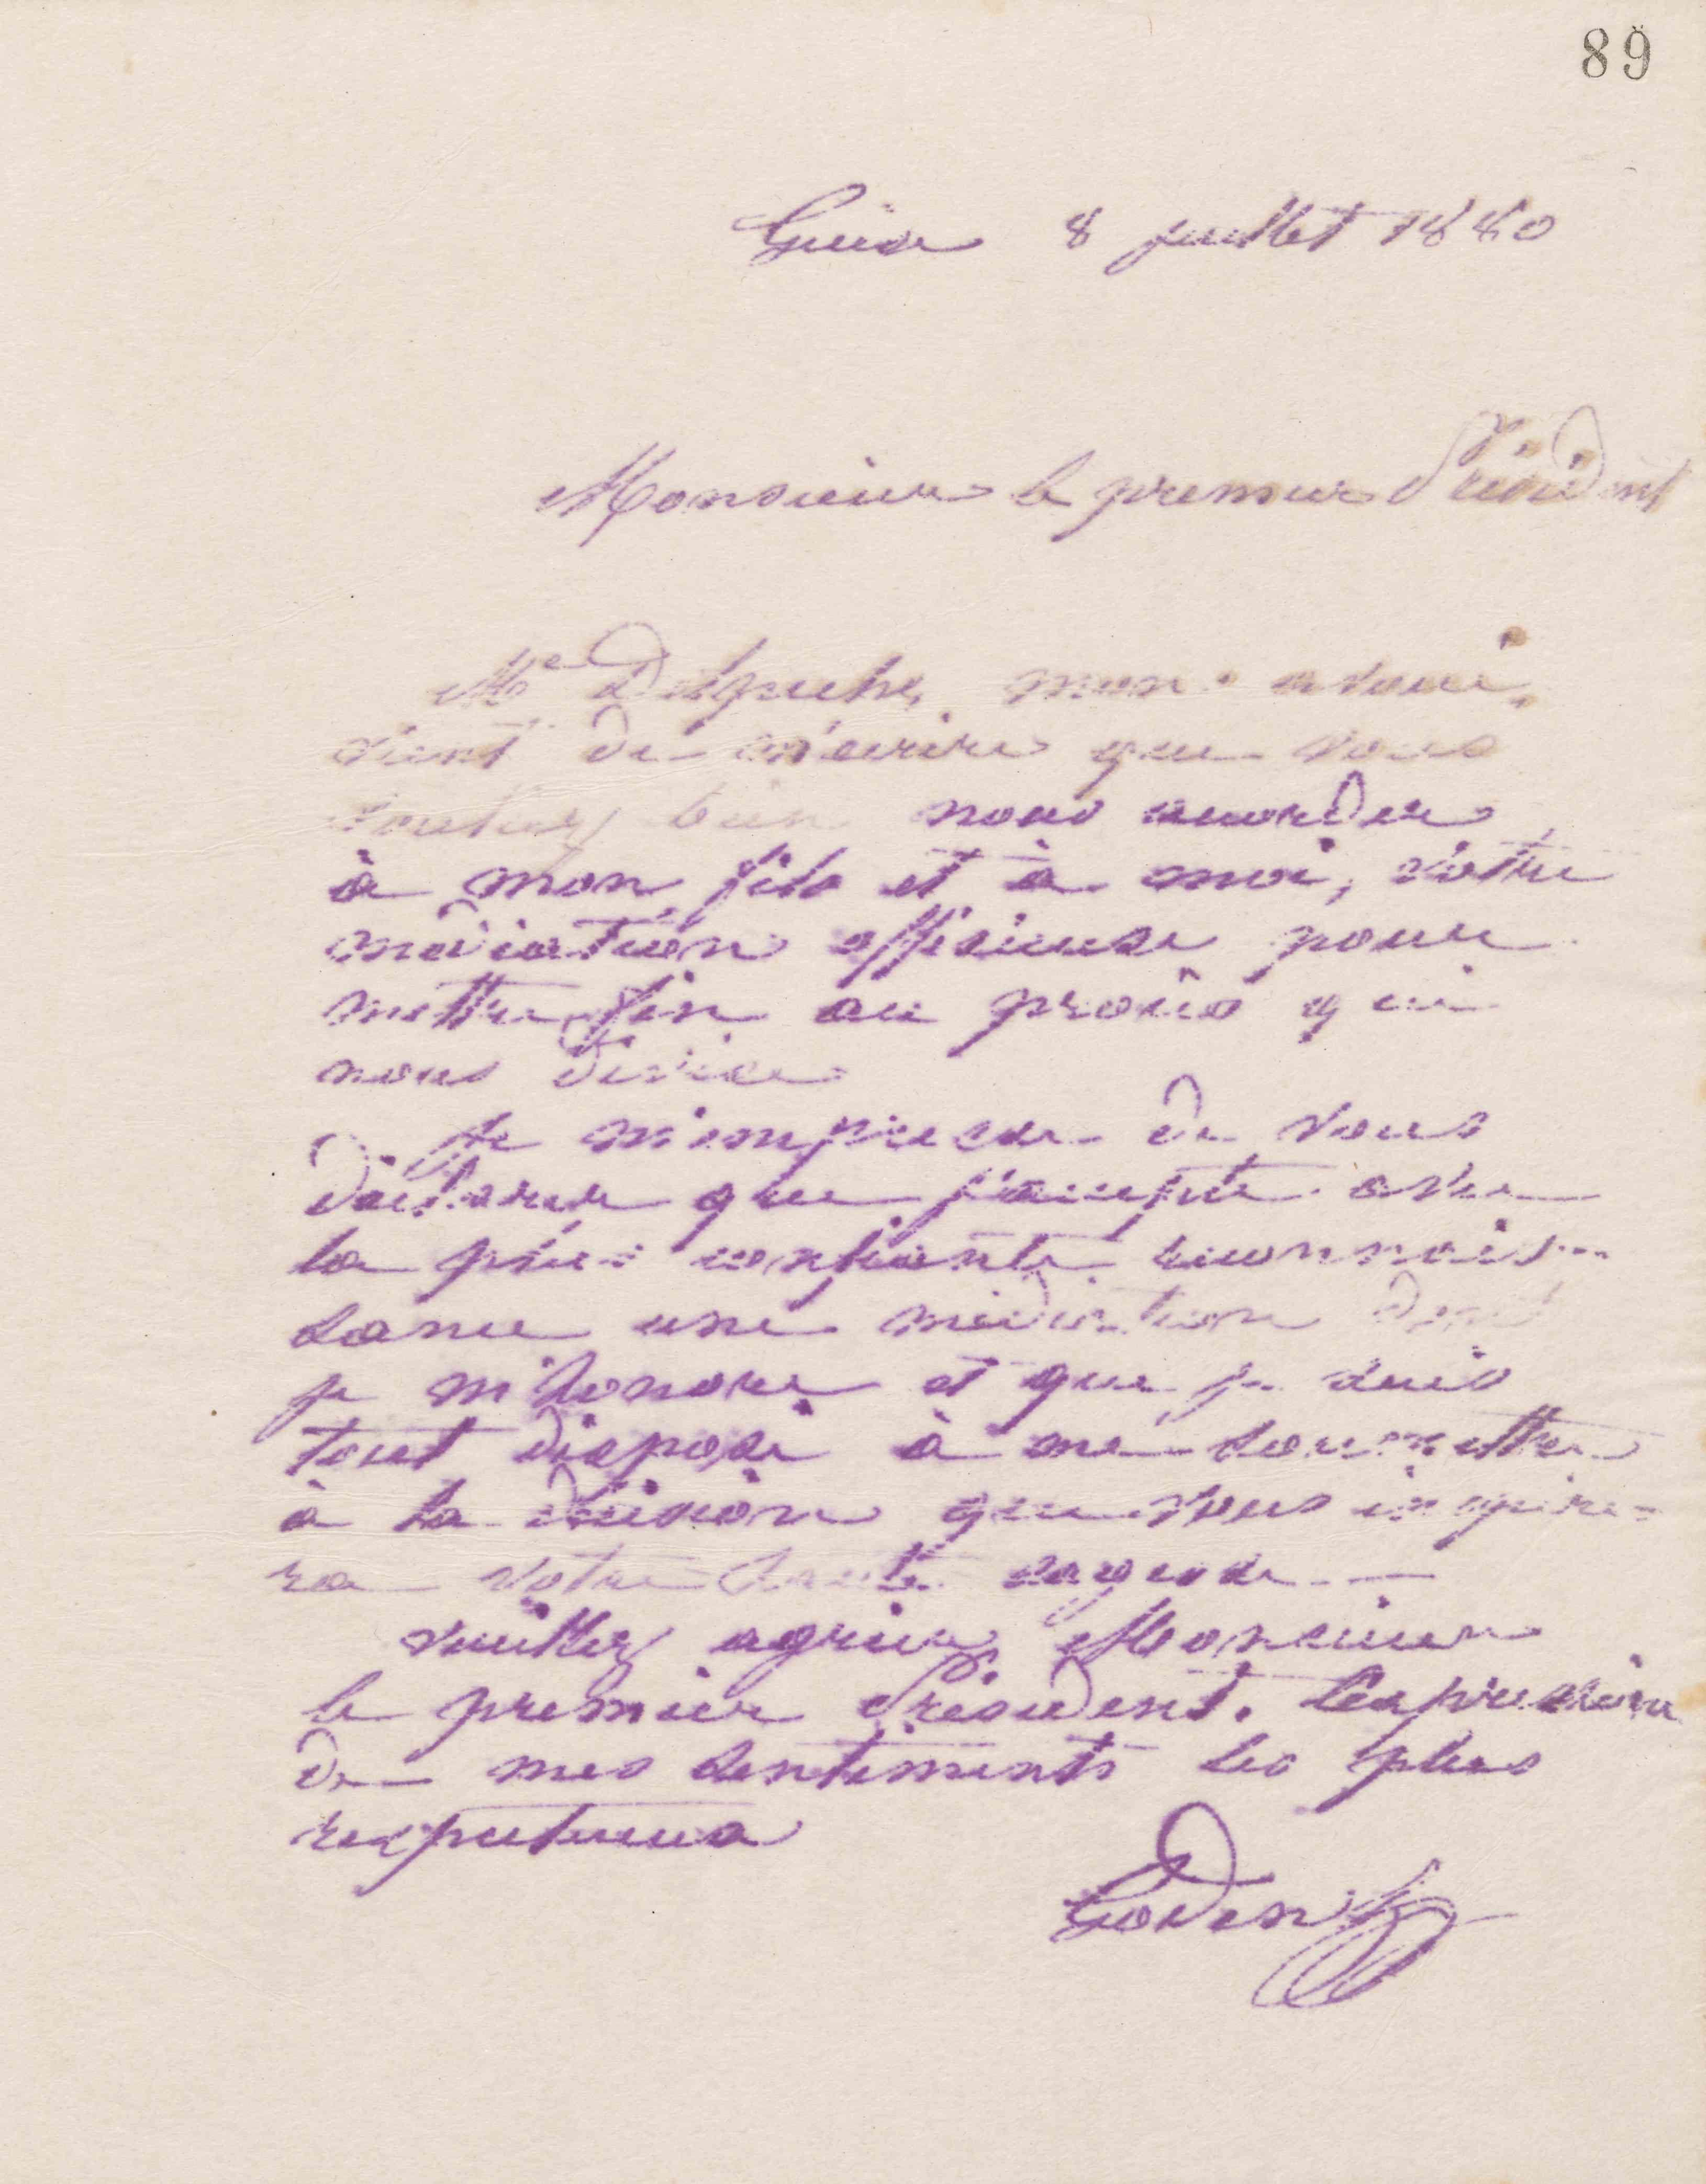 89
Guise 8 juillet 1880
Monsieur le premier Président
Me Delpech, mon avoué,
vient de m'écrire que vous
vouliez bien nous accorder
à mon fils et à moi, votre
médiation officieuse pour
mettre fin au procès qui
nous divise
Je m'empresse de vous
déclarer que j'accepte avec
la plus confiante reconnais-
sance une médiation dont
je m'honore et que je suis
tout disposé à me soumettre
à la décision que vous inspire-
ra votre haute sagesse.
Veuillez agréer, Monsieur
le premier Président, l'expression
de mes sentiments les plus
respectueux
Godin